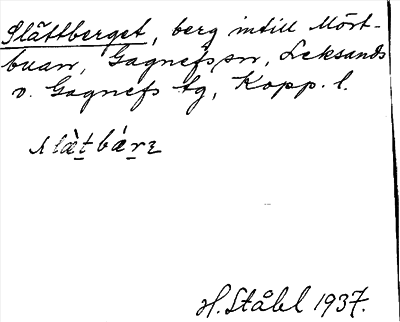 Slättberget, berg intill Mört-
buan, Gagnefs sn, Leksands
o. Gagnefs tg, Kopp. l.
H. Ståhl 1937.